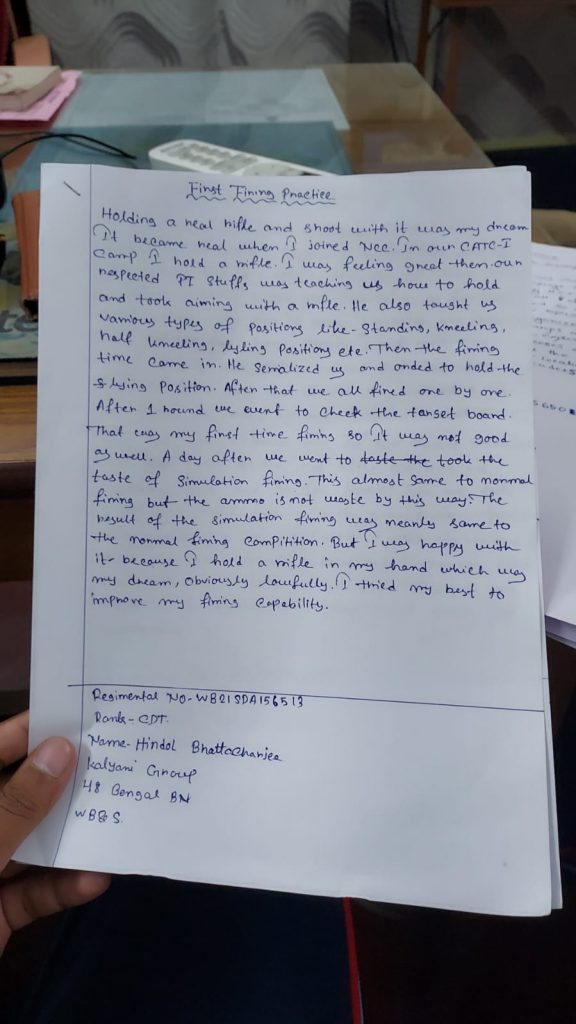 First Firing Practice
Holding a real rifle and shoot with it was my dream
It became real when I joined NCC. In our CATC-I
Camp I hold a rifle. I was feeling great then. our
respected PI Stuffs was teaching us how to hold
and took aiming with a rifle. He also taught us
various types of positions like- Standing, kneeling,
half kneeling, lyling positions etc. Then the firing
time came in. He serialized us and orded to hold the
lying position. After that we all fired one by one.
After 1 round we went to check the target board.
That was my first time firing so It was not good
as well. A day after we went to taste the took the
taste of Simulation firing. This almost same to normal
firing but the ammo is not waste by this way. The
result of the simulation firing was nearly same to
the normal firing compitition. But I was happy with
it- because I hold a rifle in my hand which was
my dream, obviously lawfully. I tried my best to
improve my firing capability.
Regimental NO- WB21SDA156513
Rank- CDT.
Name- Hindol Bhattacharjee
Kalyani Group
48 Bengal BN
WB& S.